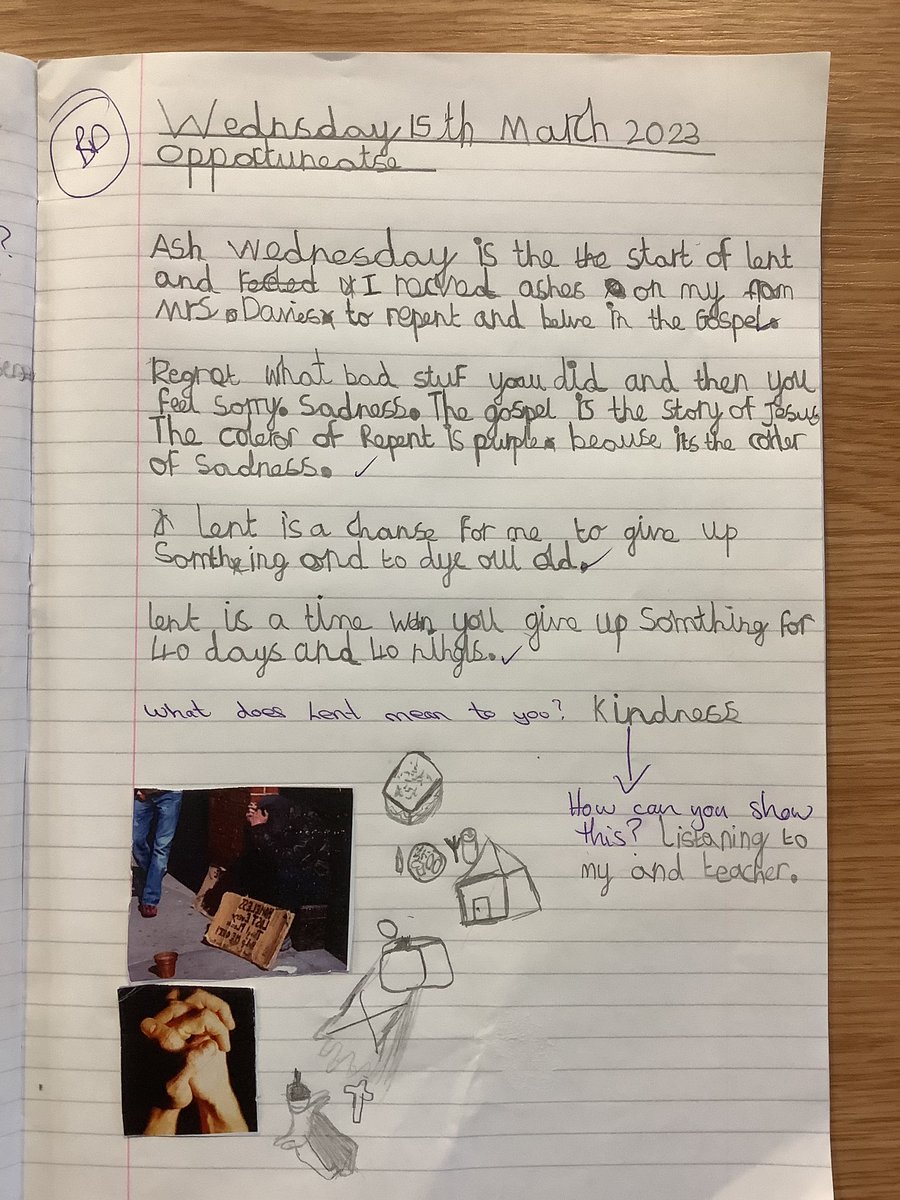 RD
Wednsday 15th March 2023
Opportuneatse
Ash Wednesday is the the start of lent
and I racvad ashes on my flom
Mrs Davies to repent and belve in the Gospel.
Regret what bad stuf you did and then you
feel sorry. Sadness. The gospel is the story of Jesus
The coleror of Repent is purple beouse its the coller
of Sadness. ✓
lent is a chanse for me to give up
Somthing and to dye oul old. ✓
lent is a time wan you give up Somthing for
40 days and 40 nihgts. ✓
What does Lent mean to you? Kindness
How can you show
this? Listaning to
my and teacher.
HOMELESS